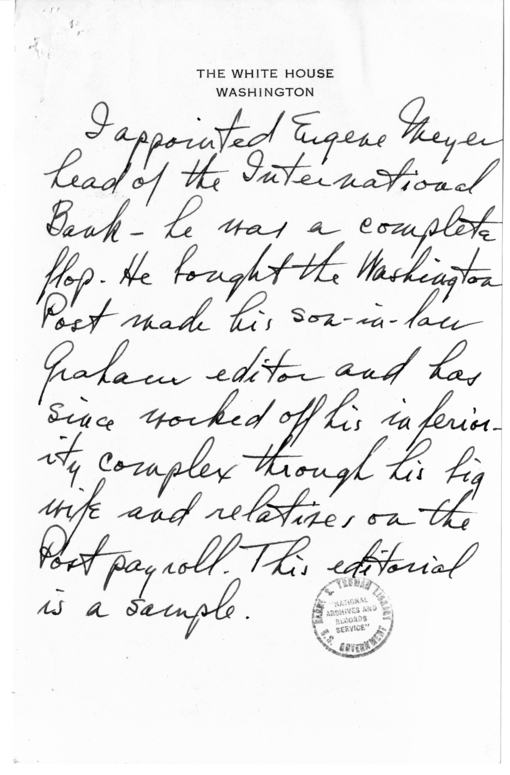 THE WHITE HOUSE
WASHINGTON
I appointed Eugene Meyer
head of the International
Bank - he was a complete
flop. He bought the Washington
Post made his son-in-law
Graham editor and has
since worked off his inferior-
ity complex through his big
wife and relatives on the
Post payroll. This editorial
is a sample.
HARRY S. TRUMAN LIBRARY
"NATIONAL
ARCHIVES AND
RECORDS
SERVICE"
U.S. GOVERNMENT